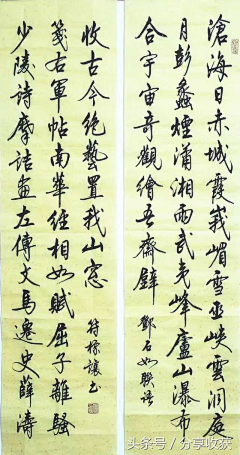 滄海日赤城霞峩嵋雪巫峽雲洞庭
月彭蠡煙瀟湘雨武夷峰廬山瀑布
合宇宙奇觀繪吾齋壁 鄧石如聯語
少陵詩摩詰畫左傳文馬遷史薛濤
箋右軍帖南華經相如賦屈子離騷
收古今絕藝置我山窓
头条号 / 分享收获